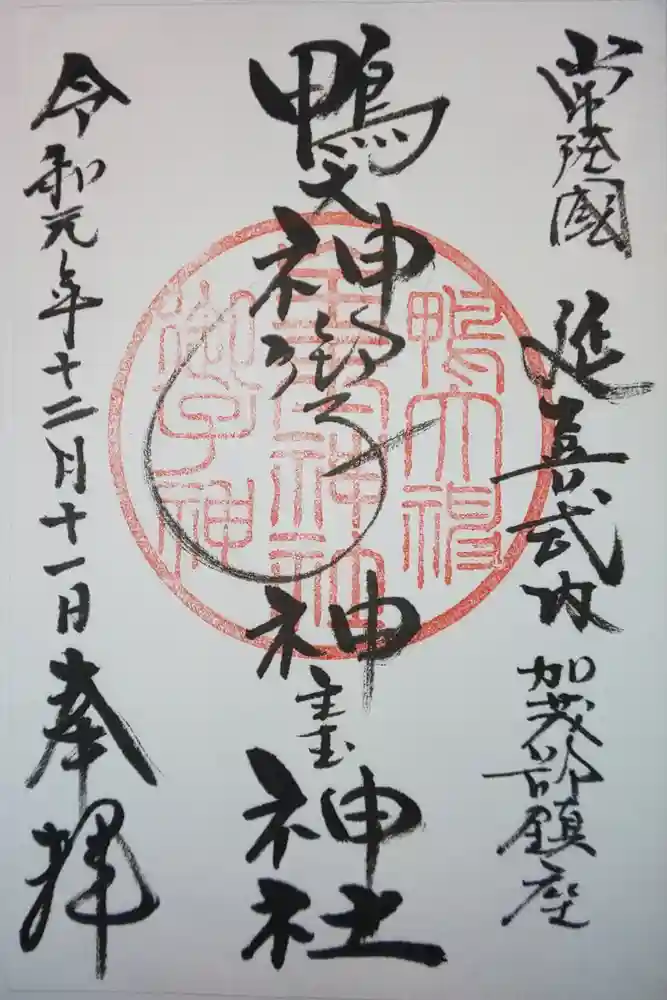 常陸國 延喜式内 加茂部鎮座
鴨大神御子神主玉神社
令和元年十二月十一日 奉拝
鴨大神
主玉神社
御子神